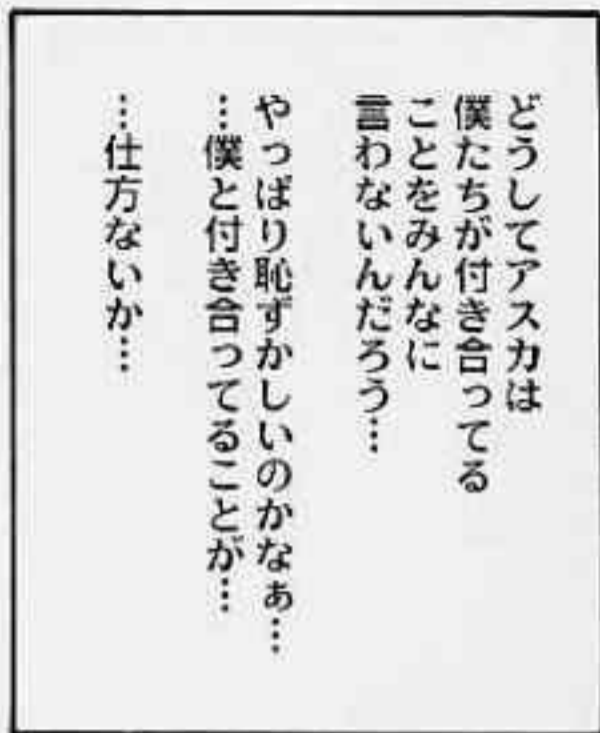 どうしてアスカは
僕たちが付き合ってる
ことをみんなに
言わないんだろう…
やっぱり恥ずかしいのかなぁ…
…僕と付き合ってることが…
…仕方ないか…